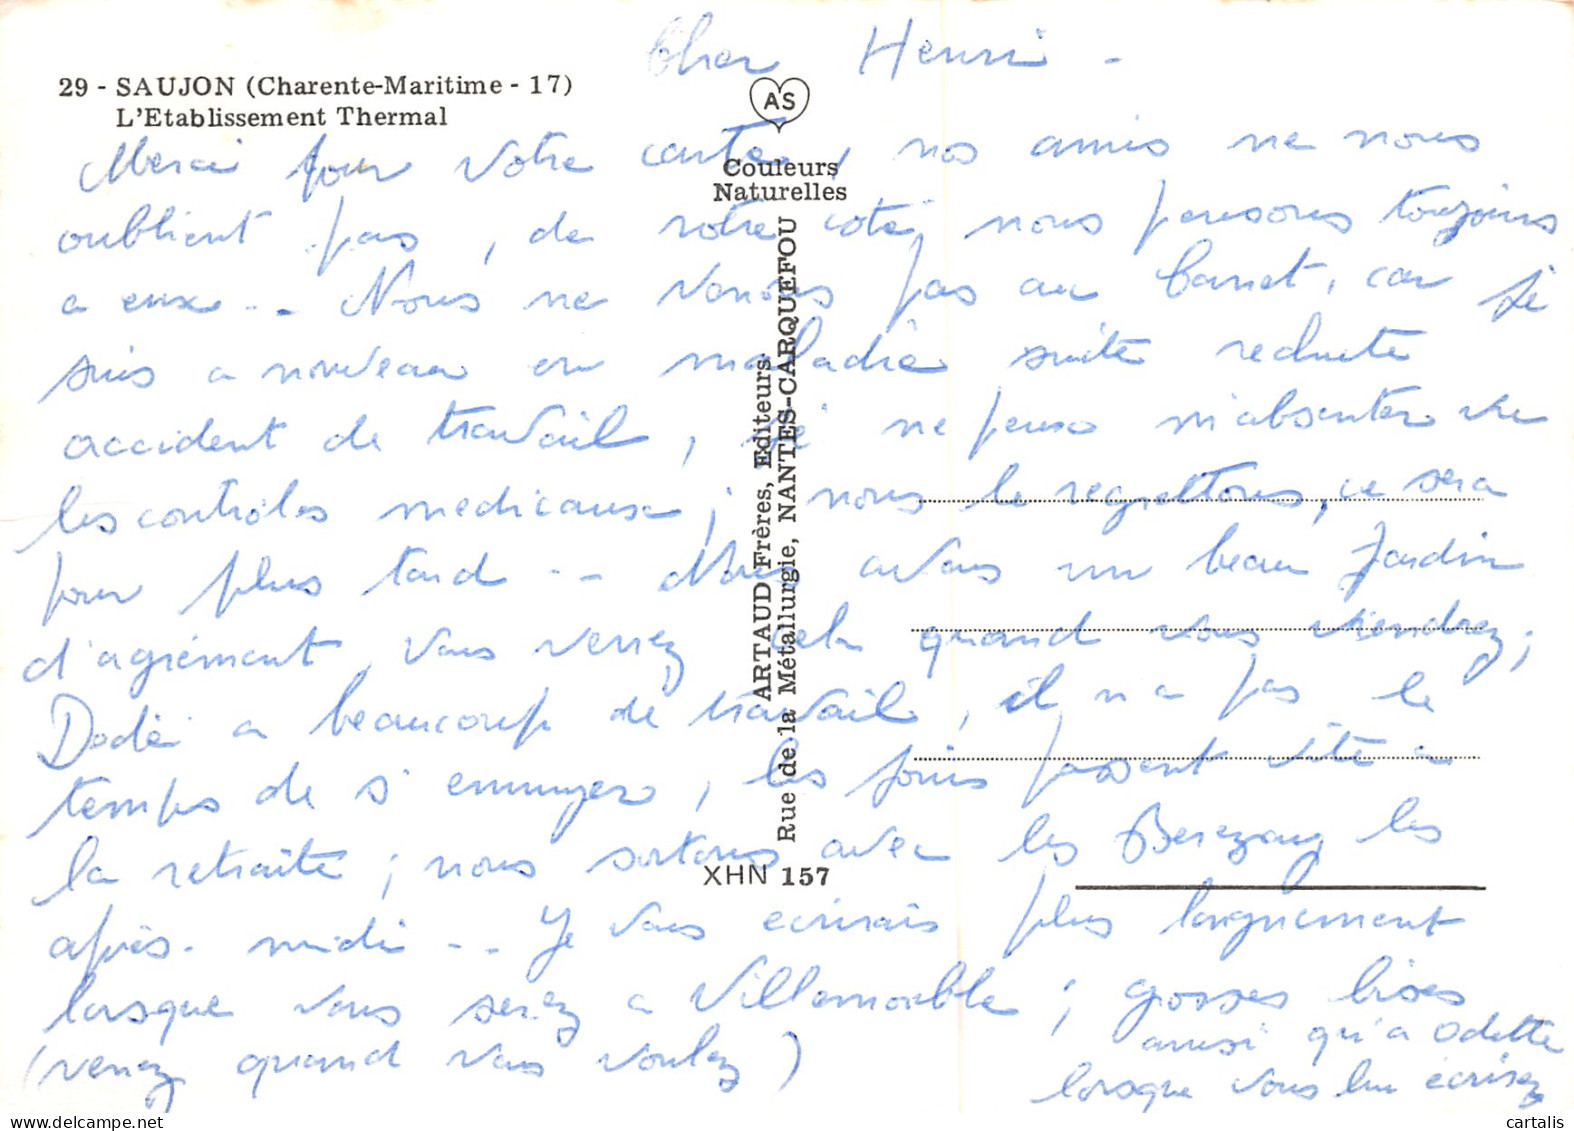 Cher Henri -
29 - SAUJON (Charente-Maritime - 17)
L'Etablissement Thermal
AS
Couleurs
Naturelles
ARTAUD Frères, Editeurs
Rue de la Métallurgie, NANTES-CARQUEFOU
XHN 157
Merci pour votre carte, nos amis ne nous
oublient pas, de notre coté, nous pensons toujours
a eux -- Nous ne venons pas au Cannet, car je
suis a nouveau en maladie suite rechute
accident de travail, je ne peux m'absenter vu
les contrôles medicaux; nous le regrettons, ce sera
pour plus tard -- Nous avons un beau Jardin
d'agrément, vous verrez cela quand vous viendrez;
Dodé a beaucoup de travail, il n a pas le
temps de s'ennuyer, les jours passent vite a
la retraite; nous sortons avec les les
après-midi -- Je vous écrirais plus longuement
lorsque vous serez a Villemomble; grosses bises
(venez quand vous voulez)
aussi qu'a Odette
lorsque vous lui écrirez
cartalis